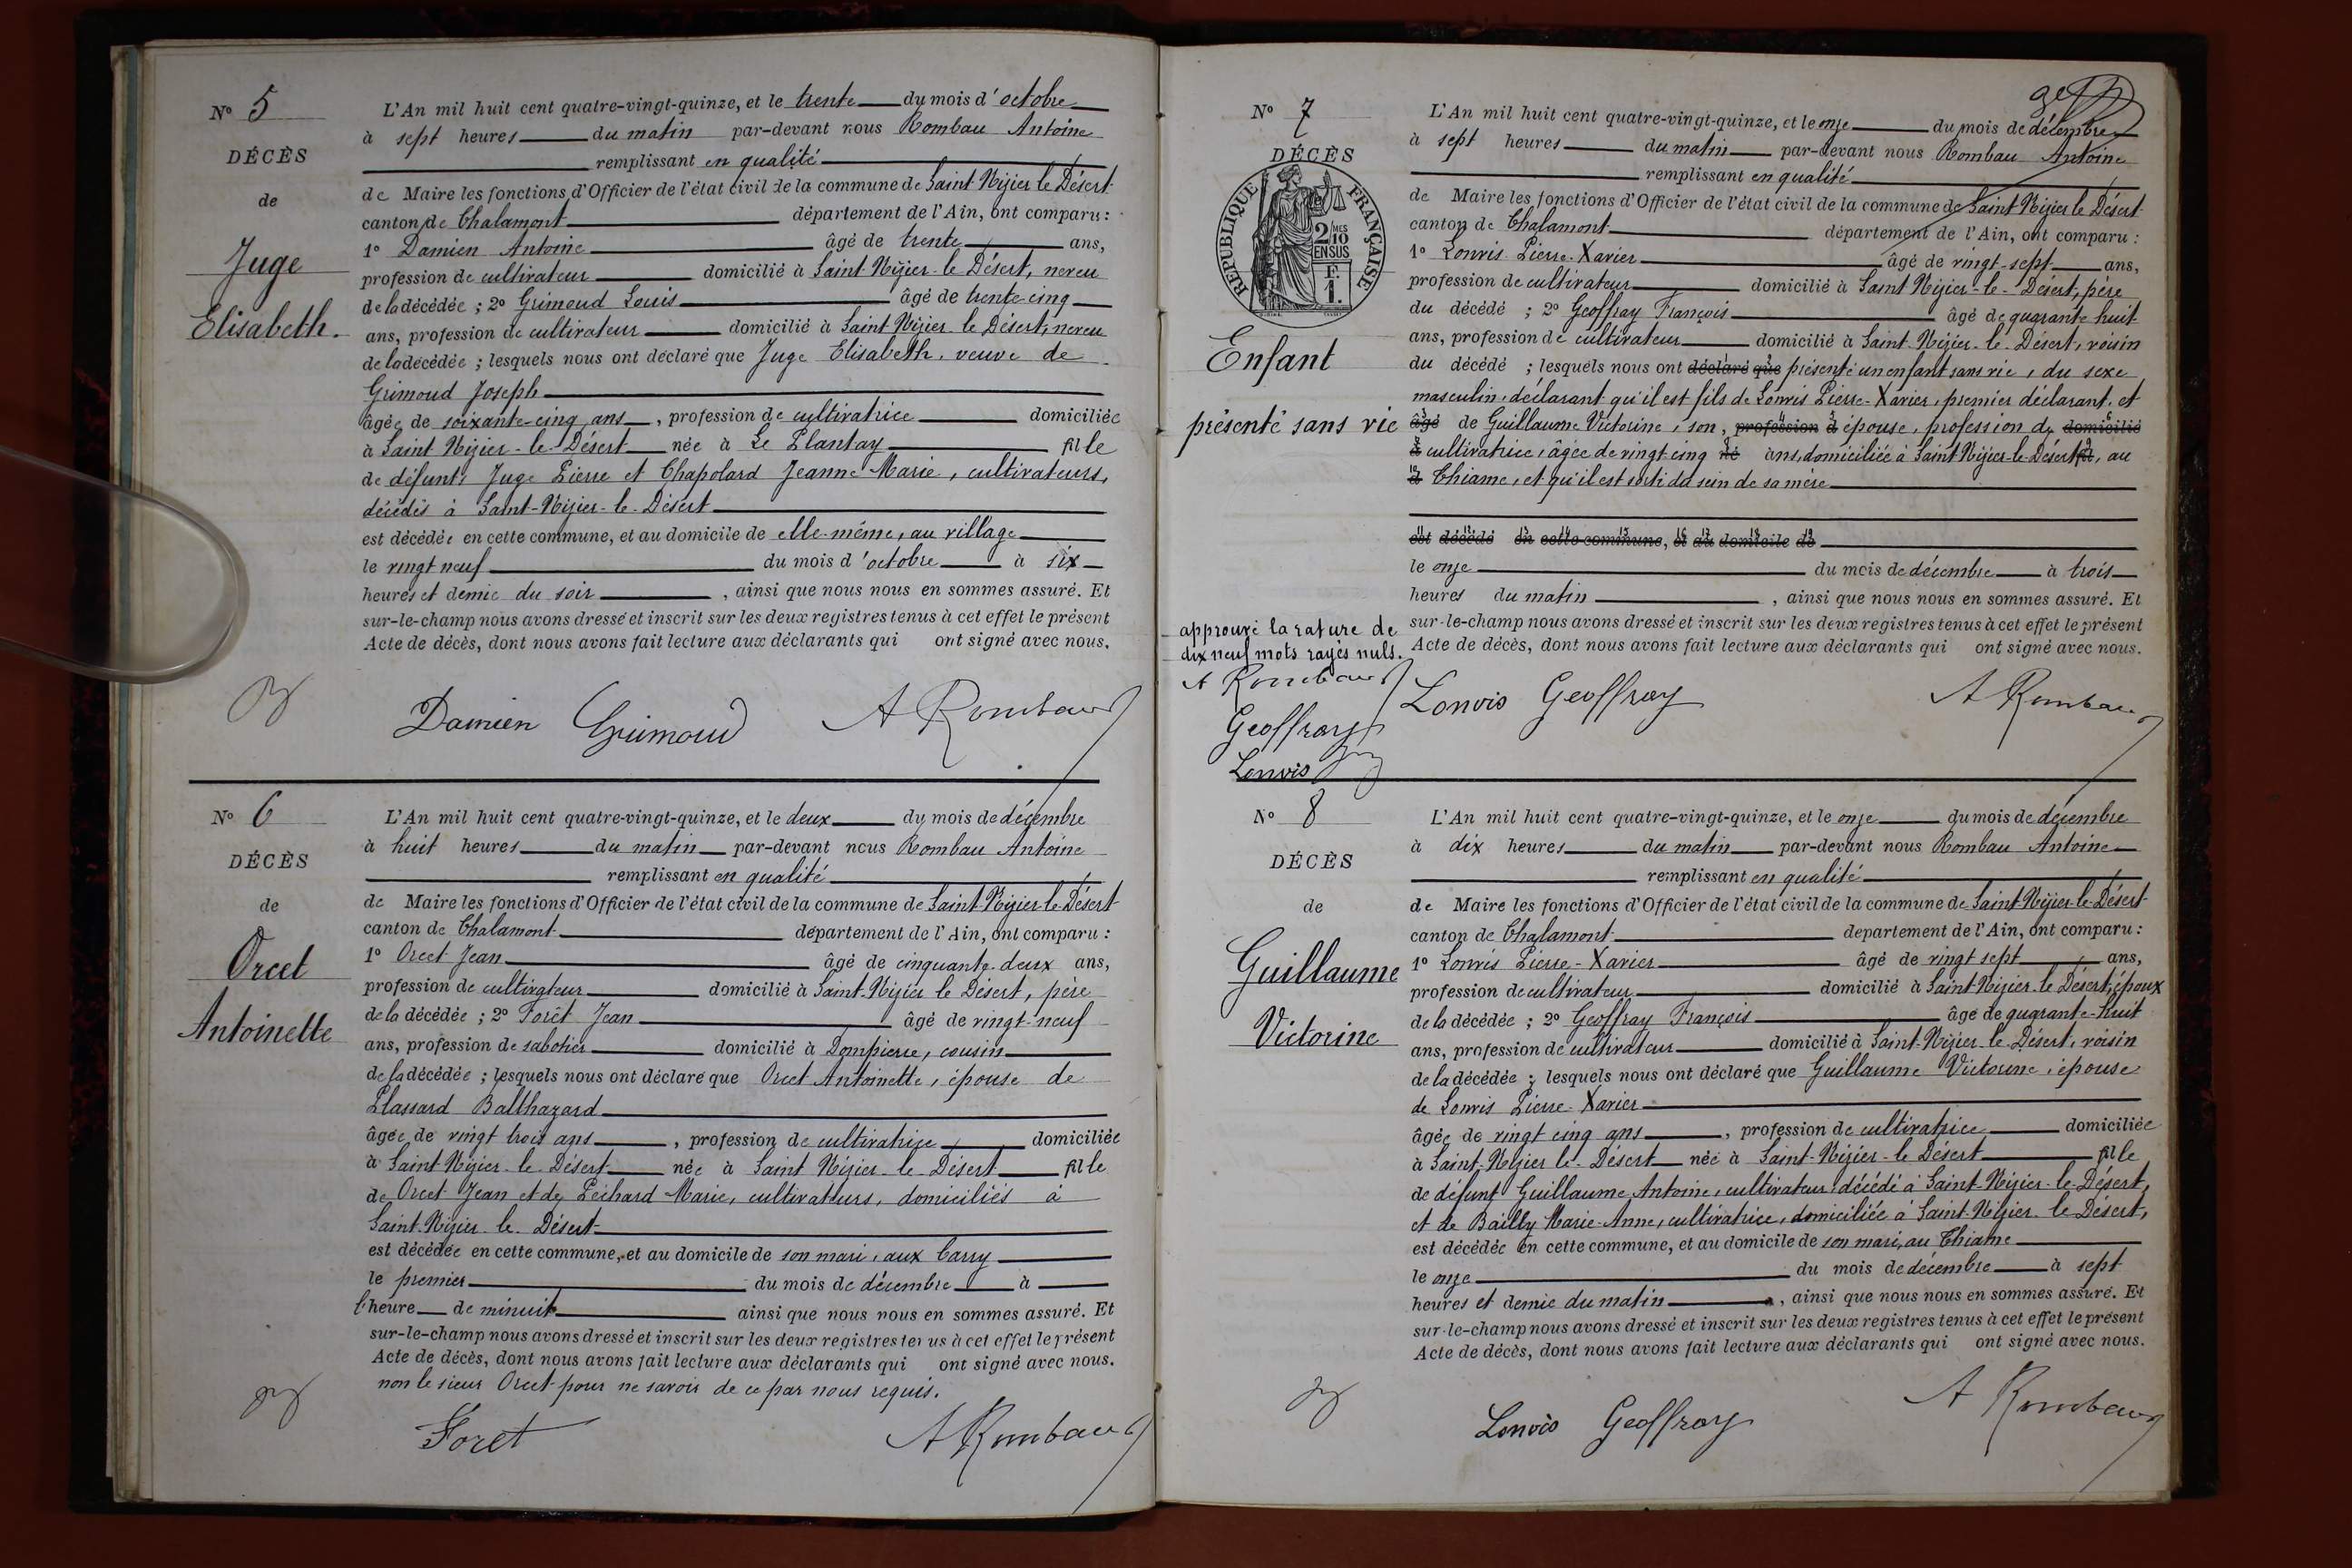 N° 5
DÉCÈS
de
Juge
Elisabeth.
L'An mil huit cent quatre-vingt-quinze, et le trente du mois d'octobre
à sept heures du matin par-devant nous Rombau Antoine
remplissant en qualité
de Maire les fonctions d'Officier de l'état civil de la commune de Saint Nizier le Désert
canton de Chalamont département de l'Ain, ont comparu :
1° Damien Antoine âgé de trente ans,
profession de cultivateur domicilié à Saint Nizier-le Désert, neveu
de la décédée ; 2° Grimoud Louis âgé de trente cinq
ans, profession de cultivateur domicilié à Saint Nizier le Désert, neveu
de la décédée ; lesquels nous ont déclaré que Juge Elisabeth, veuve de
Grimoud Joseph
âgée de soixante-cinq ans, profession de cultivatrice domiciliée
à Saint Nizier-le-Désert née à Le Plantay fille
de défunts Juge Pierre et Chapolard Jeanne Marie, cultivateurs,
décédés à Saint-Nizier-le-Désert
est décédée en cette commune, et au domicile de elle-même, au village
le vingt neuf du mois d'octobre à six
heures et demie du soir, ainsi que nous nous en sommes assuré. Et
sur-le-champ nous avons dressé et inscrit sur les deux registres tenus à cet effet le présent
Acte de décès, dont nous avons fait lecture aux déclarants qui ont signé avec nous.
Damien Grimoud A Rombaud
N° 6
DÉCÈS
de
Orcet
Antoinette
L'An mil huit cent quatre-vingt-quinze, et le deux du mois de décembre
à huit heures du matin par-devant nous Rombau Antoine
remplissant en qualité
de Maire les fonctions d'Officier de l'état civil de la commune de Saint-Nizier-le-Désert
canton de Chalamont département de l'Ain, ont comparu :
1° Orcet Jean âgé de cinquante-deux ans,
profession de cultivateur domicilié à Saint-Nizier le Désert, père
de la décédée ; 2° Forêt Jean âgé de vingt-neuf
ans, profession de sabotier domicilié à Dompierre, cousin
de la décédée ; lesquels nous ont déclaré que Orcet Antoinette, épouse de
Plassard Balthazard
âgée de vingt trois ans, profession de cultivatrice domiciliée
à Saint Nizier-le-Désert née à Saint Nizier-le-Désert fille
de Orcet Jean et de Péchard Marie, cultivateurs, domiciliés à
Saint-Nizier-le-Désert
est décédée en cette commune, et au domicile de son mari, aux Carry
le premier du mois de décembre à
l'heure de minuit ainsi que nous nous en sommes assuré. Et
sur-le-champ nous avons dressé et inscrit sur les deux registres tenus à cet effet le présent
Acte de décès, dont nous avons fait lecture aux déclarants qui ont signé avec nous.
non le sieur Orcet pour ne savoir de ce par nous requis.
Foret A Rombaud
N° 7
DÉCÈS
RÉPUBLIQUE FRANÇAISE
2/10 MES
EN SUS
F.
1.
Enfant
présenté sans vie
L'An mil huit cent quatre-vingt-quinze, et le onze du mois de décembre
à sept heures du matin par-devant nous Rombau Antoine
remplissant en qualité
de Maire les fonctions d'Officier de l'état civil de la commune de Saint Nizier le Désert
canton de Chalamont département de l'Ain, ont comparu :
1° Lonvis Pierre-Xavier âgé de vingt-sept ans,
profession de cultivateur domicilié à Saint Nizier-le-Désert, père
du décédé ; 2° Geoffray François âgé de quarante huit
ans, profession de cultivateur domicilié à Saint-Nizier-le-Désert, voisin
du décédé ; lesquels nous ont déclaré que présenté un enfant sans vie, du sexe
masculin, déclarant qu'il est fils de Lonvis Pierre-Xavier, premier déclarant, et
âgé de Guillaume Victorine, son, profession d épouse, profession de domicilié
à cultivatrice, âgée de vingt cinq né ans, domiciliée à Saint Nizier-le-Désert fil, au
d Chiame, et qu'il est sorti du sein de sa mère
est décédé en cette commune, et au domicile de
le onze du mois de décembre à trois
heures du matin, ainsi que nous nous en sommes assuré. Et
sur-le-champ nous avons dressé et inscrit sur les deux registres tenus à cet effet le présent
Acte de décès, dont nous avons fait lecture aux déclarants qui ont signé avec nous.
approuvé la rature de
dix neuf mots rayés nuls.
A Rombaud
Geoffray
Lonvis
Lonvis Geoffray A Rombaud
N° 8
DÉCÈS
de
Guillaume
Victorine
L'An mil huit cent quatre-vingt-quinze, et le onze du mois de décembre
à dix heures du matin par-devant nous Rombau Antoine
remplissant en qualité
de Maire les fonctions d'Officier de l'état civil de la commune de Saint-Nizier-le-Désert
canton de Chalamont département de l'Ain, ont comparu :
1° Lonvis Pierre-Xavier âgé de vingt sept ans,
profession de cultivateur domicilié à Saint-Nizier-le Désert, époux
de la décédée ; 2° Geoffray François âgé de quarante-huit
ans, profession de cultivateur domicilié à Saint-Nizier-le-Désert, voisin
de la décédée ; lesquels nous ont déclaré que Guillaume Victorine, épouse
de Lonvis Pierre-Xavier
âgée de vingt cinq ans, profession de cultivatrice domiciliée
à Saint-Nizier le-Désert née à Saint-Nizier-le Désert fille
de défunt Guillaume Antoine, cultivateur, décédé à Saint-Nizier-le-Désert,
et de Bailly Marie-Anne, cultivatrice, domiciliée à Saint-Nizier-le Désert,
est décédée en cette commune, et au domicile de son mari, au Chiame
le onze du mois de décembre à sept
heures et demie du matin, ainsi que nous nous en sommes assuré. Et
sur-le-champ nous avons dressé et inscrit sur les deux registres tenus à cet effet le présent
Acte de décès, dont nous avons fait lecture aux déclarants qui ont signé avec nous.
Lonvis Geoffray A Rombaud